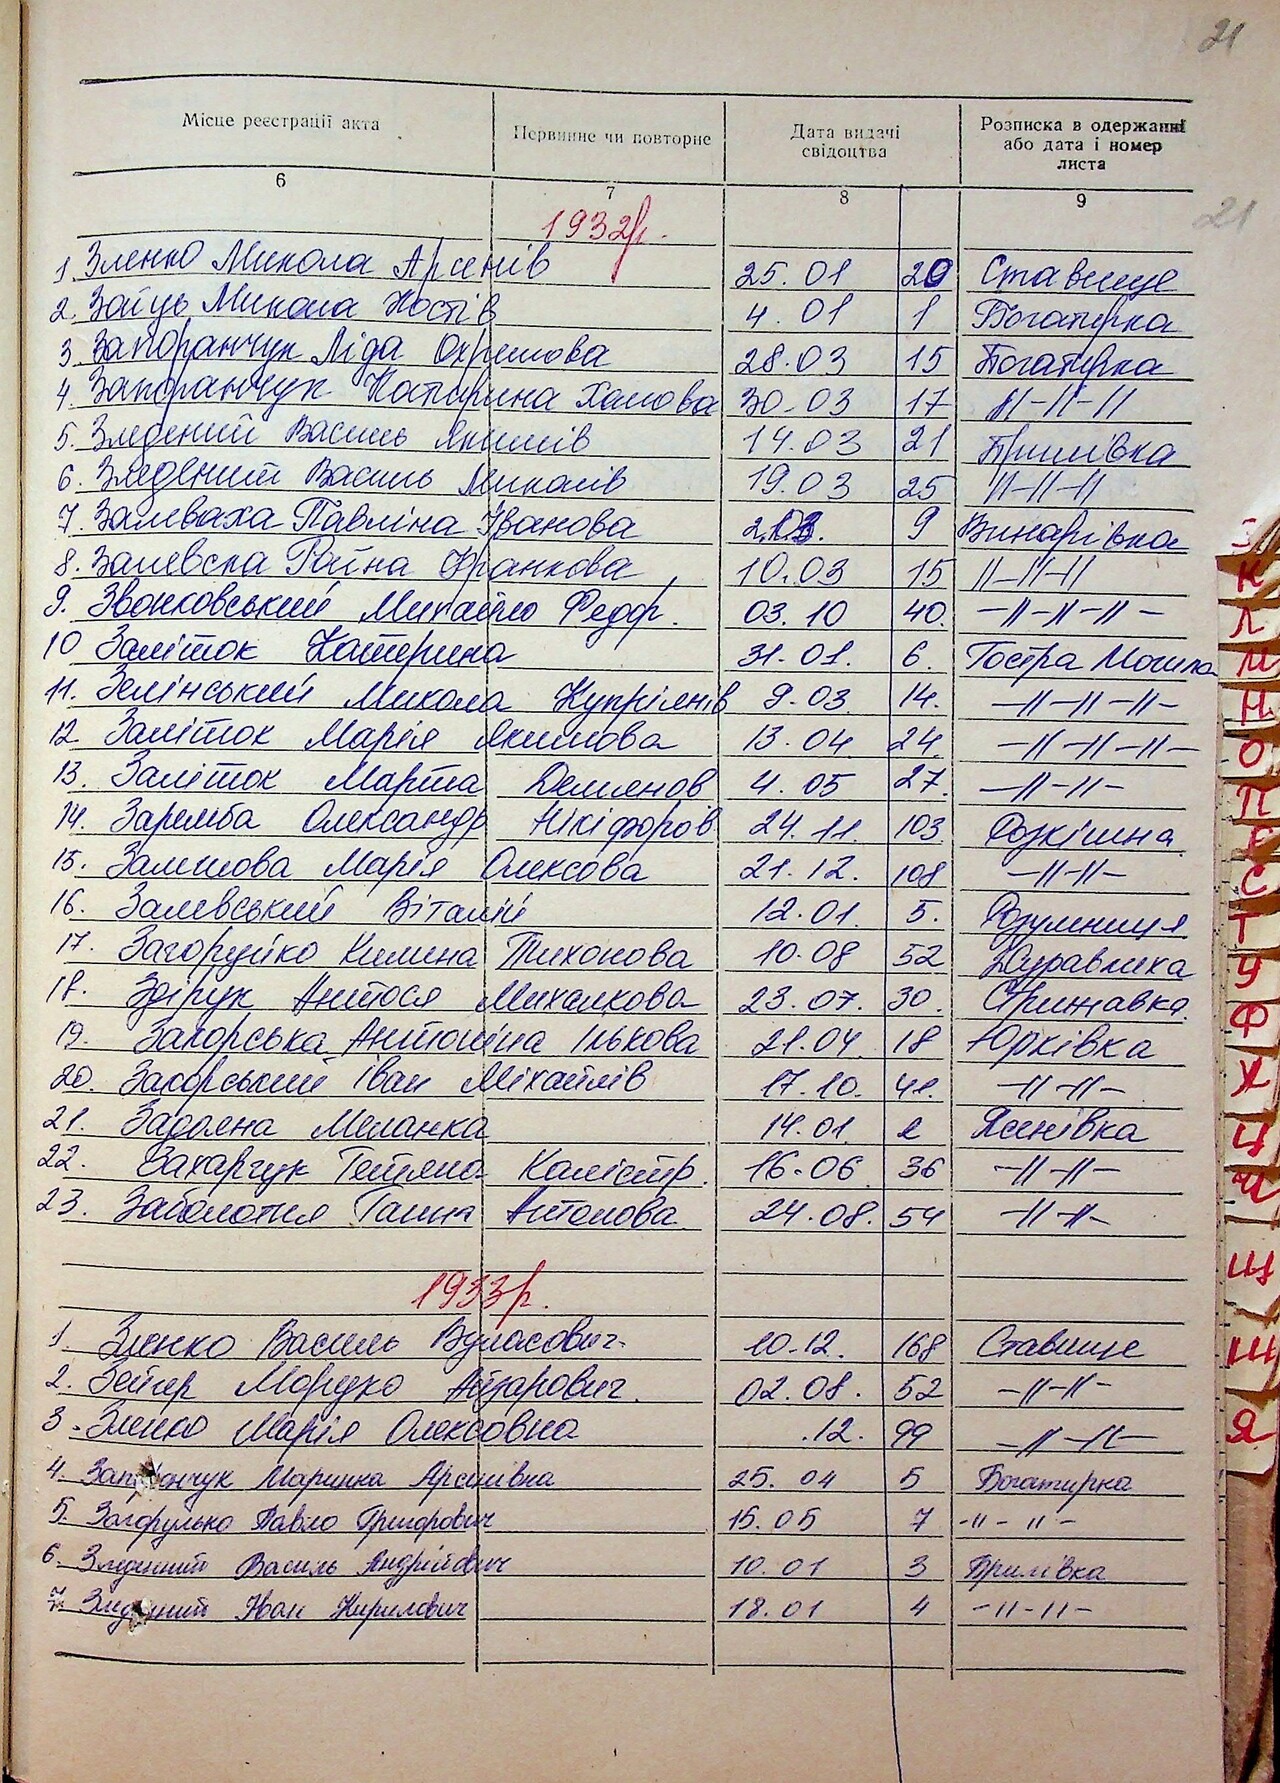 21
Місце реєстрації акта Первинне чи повторне Дата видачі свідоцтва Розписка в одержанні або дата і номер листа
6 7 8 9
21
1932р.
1. Зленко Микола Арсенів 25.01 20 Ставище
2. Заїць Микола Костів 4.01 1 Богатирка
3 Запоранчук Ліда Охремова 28.03 15 Богатирка
4. Запоранчук Катерина Хомова 30.03 17 -//-//-//
5. Зледений Василь Якимів 14.03 21 Брилівка
6. Зледений Василь Миколів 19.03 25 //-//-//
7. Залеваха Павліна Іванова 9 Винарівка
8. Залевска Раїна Франкова 10.03 15 //-//-//
9. Звонковський Михайло Федор. 03.10 40. -//-//-//-
10 Заліток Катерина 31.01. 6. Гостра Могила
11. Зелінський Микола Купріянів 9.03 14. -//-//-//-
12. Заліток Марія Якимова 13.04 24. -//-//-//-
13. Заліток Марта Демянов 4.05 27. -//-//-
14. Заремба Олександр Нікіфоров. 24.11. 103 Розкішна
15. Замшова Марія Олексова 21.12. 108 -//-//-
16. Залевський Віталій 12.01. 5. Розумниця
17. Загоруйко Килина Тихонова 10.08 52 Журавлиха
18. Здірук Антося Михалкова 23.07. 30. Стрижавка
19. Загорська Антоніна Ількова 21.04 18 Юрківка
20. Загорський Іван Міхайлів 17.10. 41. -//-//-
21. Задояна Меланка 14.01. 2 Ясенівка
22. Захарчук Тетяна Калістр. 16.06. 36 -//-//-
23. Заболотня Ганна Антонова 24.08. 54 -//-//-
1933р.
1. Зленко Василь Вуласович 10.12. 168 Ставище
2. Зейгер Мордко Айзарович. 02.08. 52 -//-//-
3. Зленко Марія Олексовна .12. 99 -//-//-
4. Маринка Арсенівна 25.04 5 Богатирка
5. Загорулько Павло Григорович 15.05 7 -//-//-
6. Зледений Василь Андрійович 10.01 3 Брилівка
7. Іван Кирилович 18.01 4 -//-//-
З
К
Л
М
Н
О
П
Р
С
Т
У
Ф
Х
Ц
Ч
Ш
Щ
Я